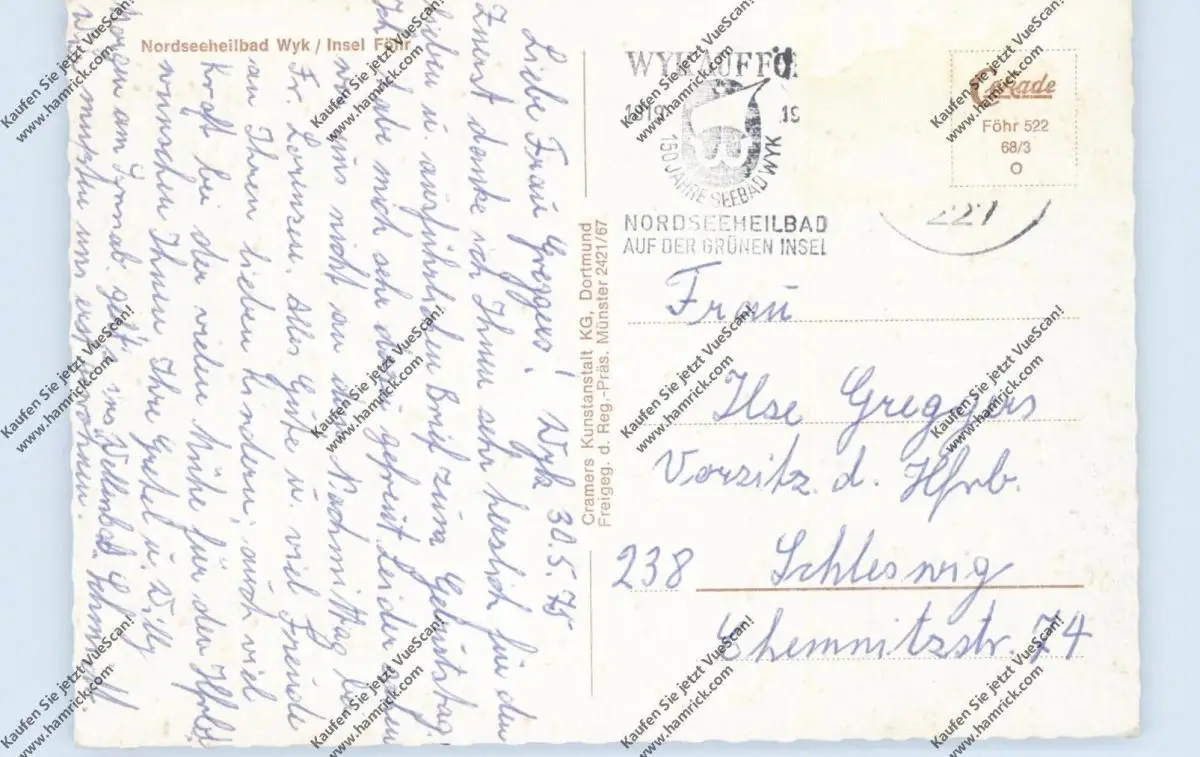 Nordseeheilbad Wyk / Insel Föhr
Wyk 30.5.75
Liebe Frau Greggers!
Zuerst danke ich Ihnen sehr herzlich für den
lieben u. ausführlichen Brief zum Geburtstag.
Ich habe mich sehr dazu gefreut. Leider sahen
wir uns nicht an dem Nachmittag bei
Fr. Lorenzen. Alles Gute u. viel Freude
an Ihren lieben Kindern, auch viel
Kraft bei der vielen Mühe für den Hfrb
wünschen Ihnen Ihre Gretel u. Willy
am geht's ins Wellenbad. Schmidt.
wir mußten uns
Cramers Kunstanstalt KG, Dortmund
Freigeg. d. Reg.-Präs. Münster 2421/67
WYK AUF FÖ
1819
19
150 JAHRE SEEBAD WYK
NORDSEEHEILBAD
AUF DER GRÜNEN INSEL
227
Föhr 522
68/3
O
Frau
Ilse Greggers
Vorsitz. d. Hfrb.
238 Schleswig
Chemnitzstr. 74
Kaufen Sie jetzt VueScan!
www.hamrick.com